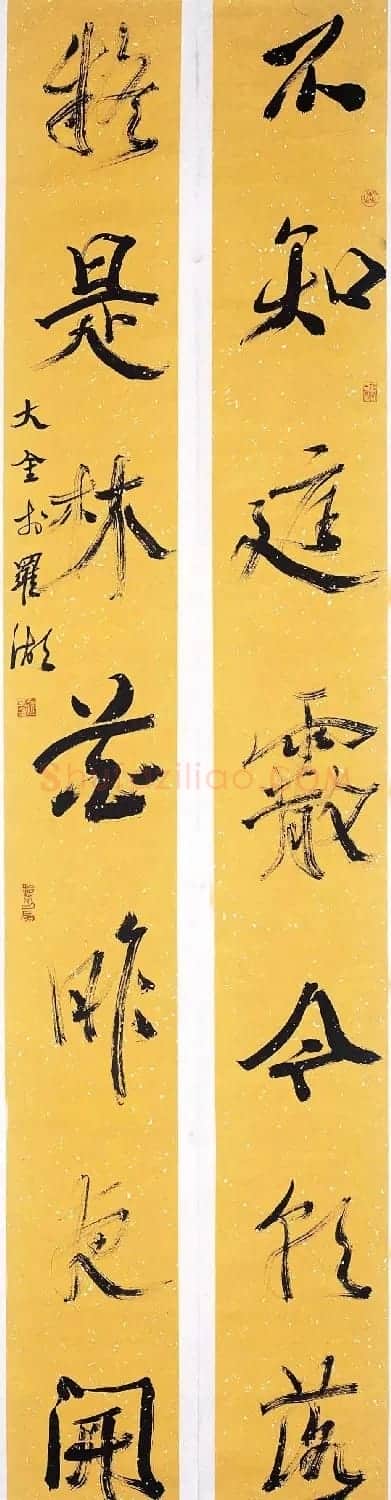 不知庭霰今朝落
疑是林花昨夜開
大於羅湖